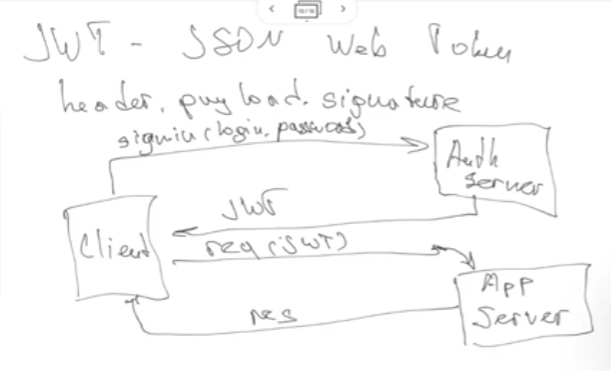 JWT - JSON Web Token
header. payload. signature
signin (login, password)
Auth
Server
JWT
Client
req (JWT)
App
Server
res